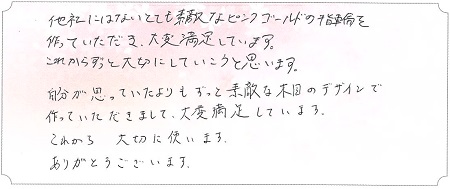 他社にはないとても素敵なピンクゴールドの指輪を
作っていただき、大変満足しています。
これからずっと大切にしていこうと思います。
自分が思っていたよりもずっと素敵な木目のデザインで
作っていただきまして、大変満足しています。
これから 大切に使います。
ありがとうございます。